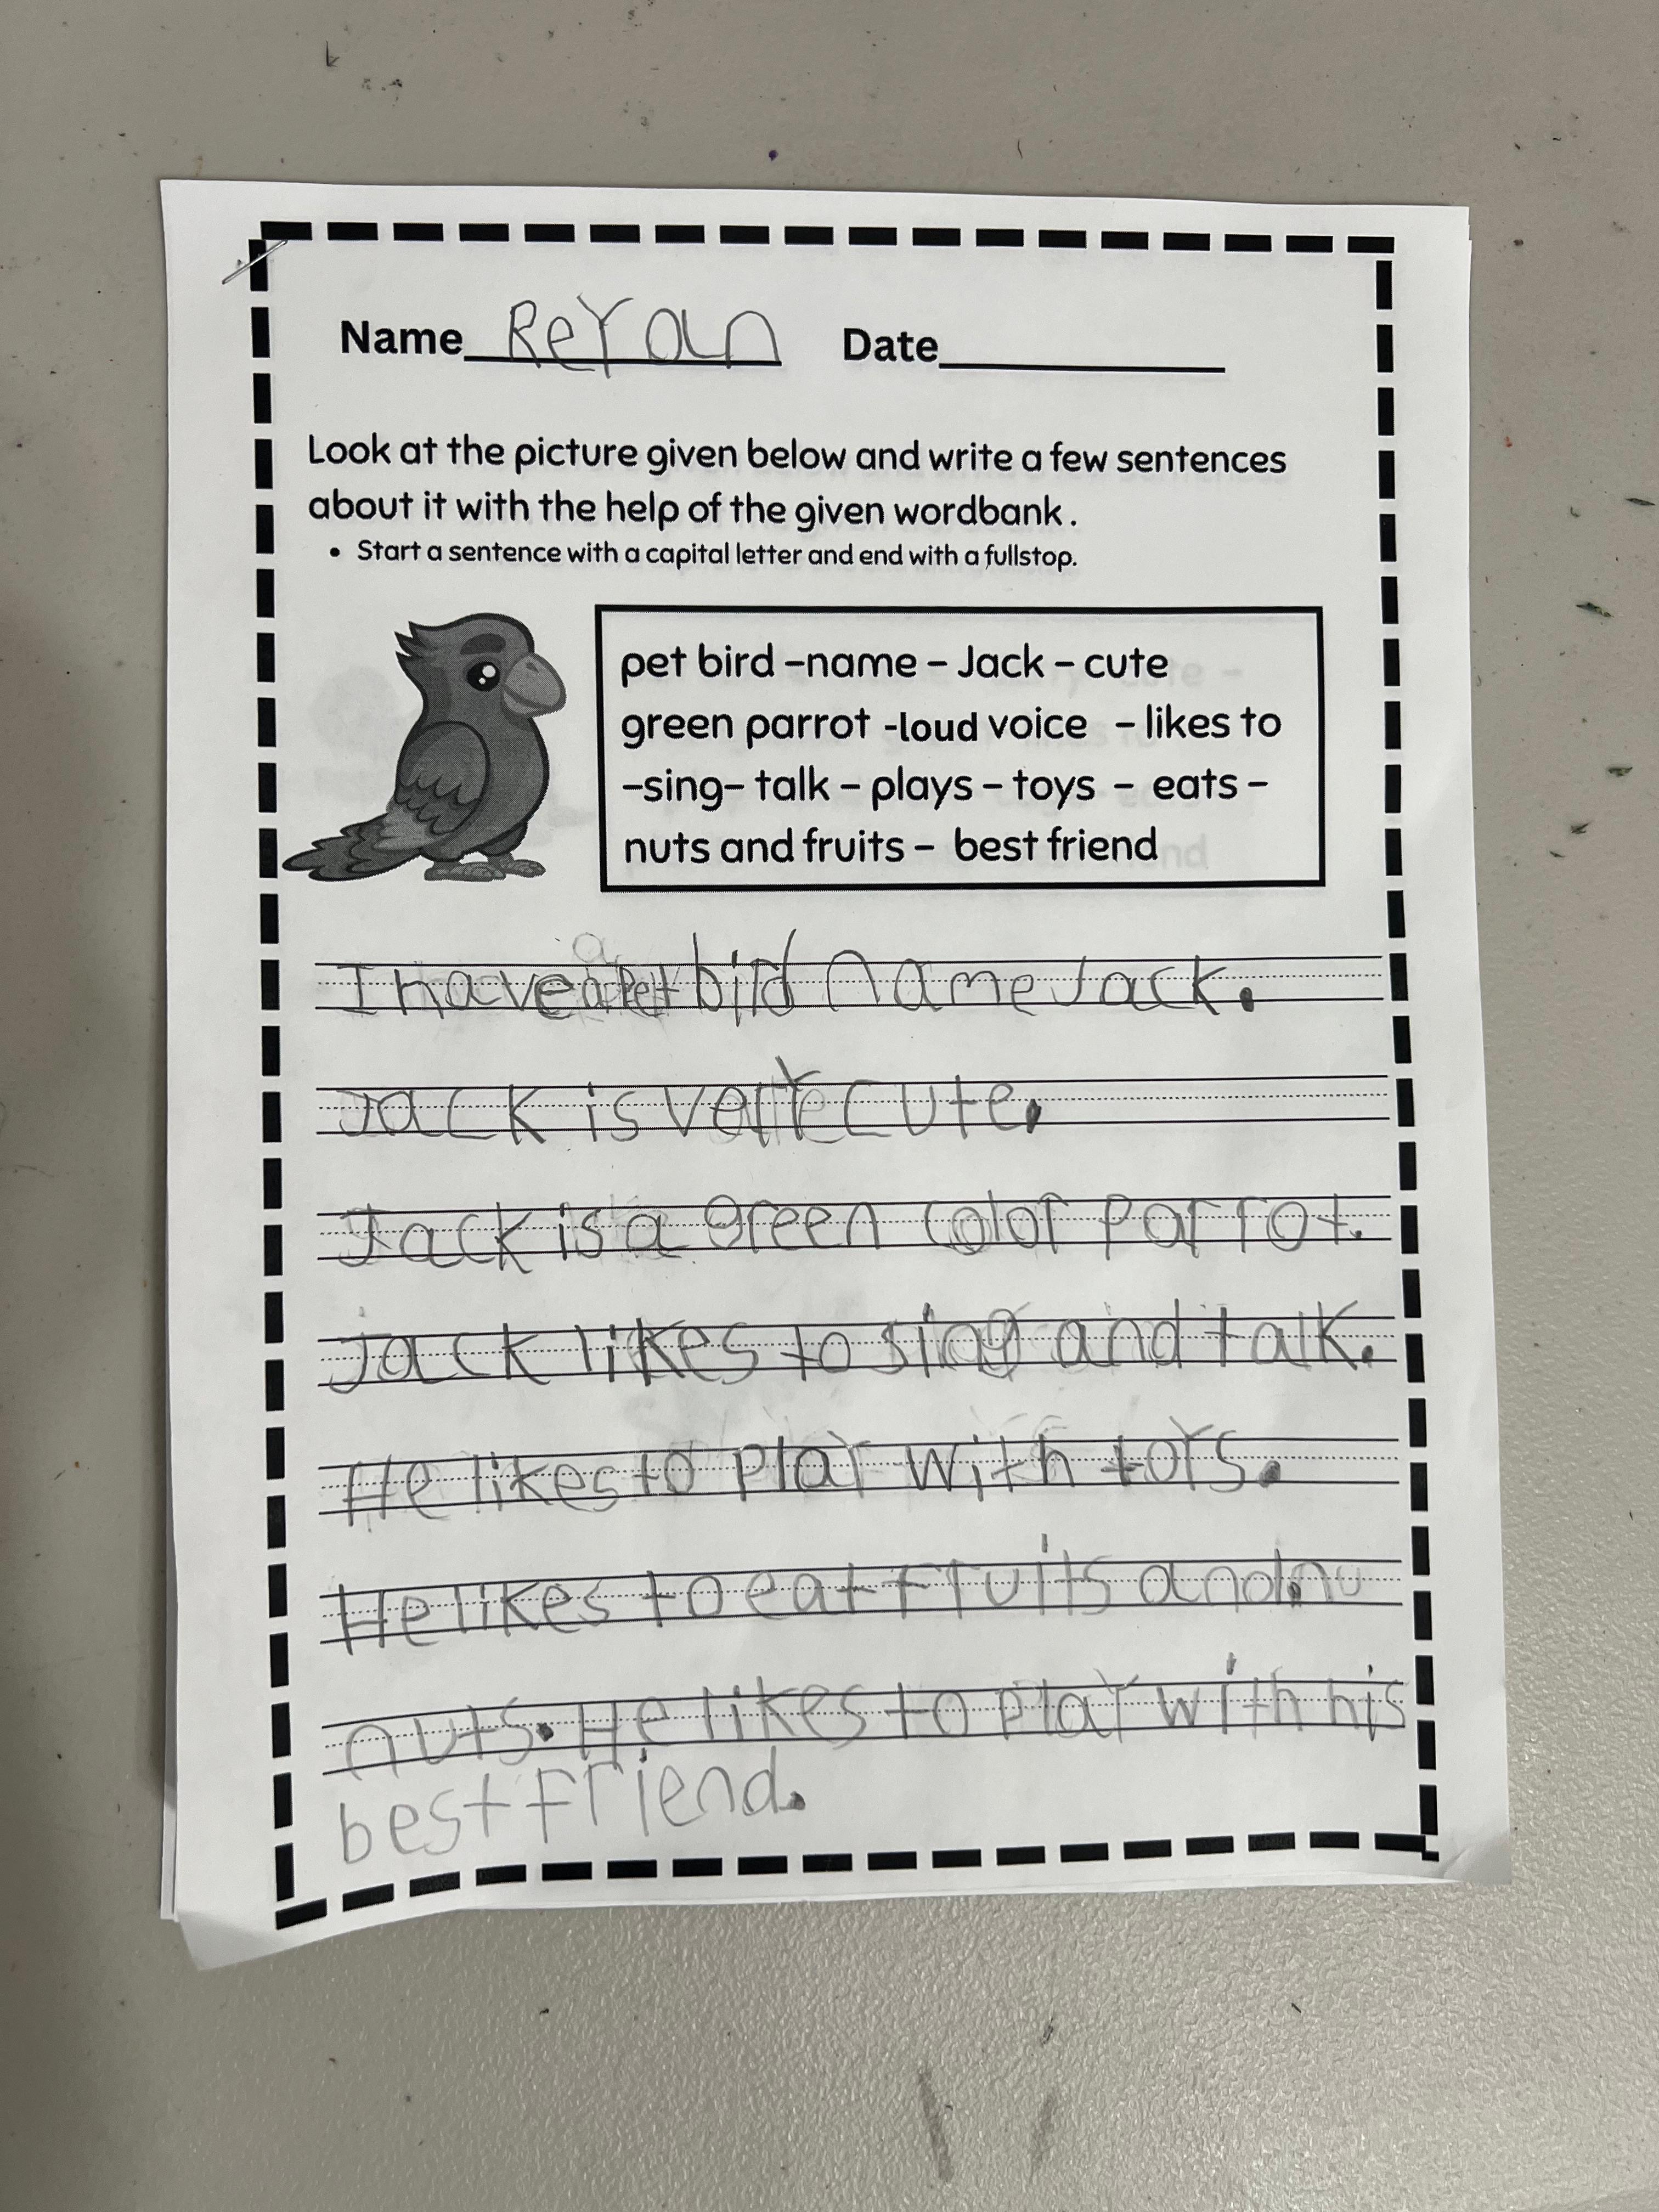 Name ReYan Date
Look at the picture given below and write a few sentences
about it with the help of the given wordbank.
• Start a sentence with a capital letter and end with a fullstop.
pet bird -name - Jack - cute
green parrot -loud voice - likes to
-sing- talk - plays - toys - eats -
nuts and fruits - best friend
I have a Pet bird name Jack.
Jack is very cute.
Jack is a green color parrot.
Jack likes to sing and talk.
He likes to Play with toys.
He likes to eat fruits and nu
nuts. He likes to Play with his
best friend.